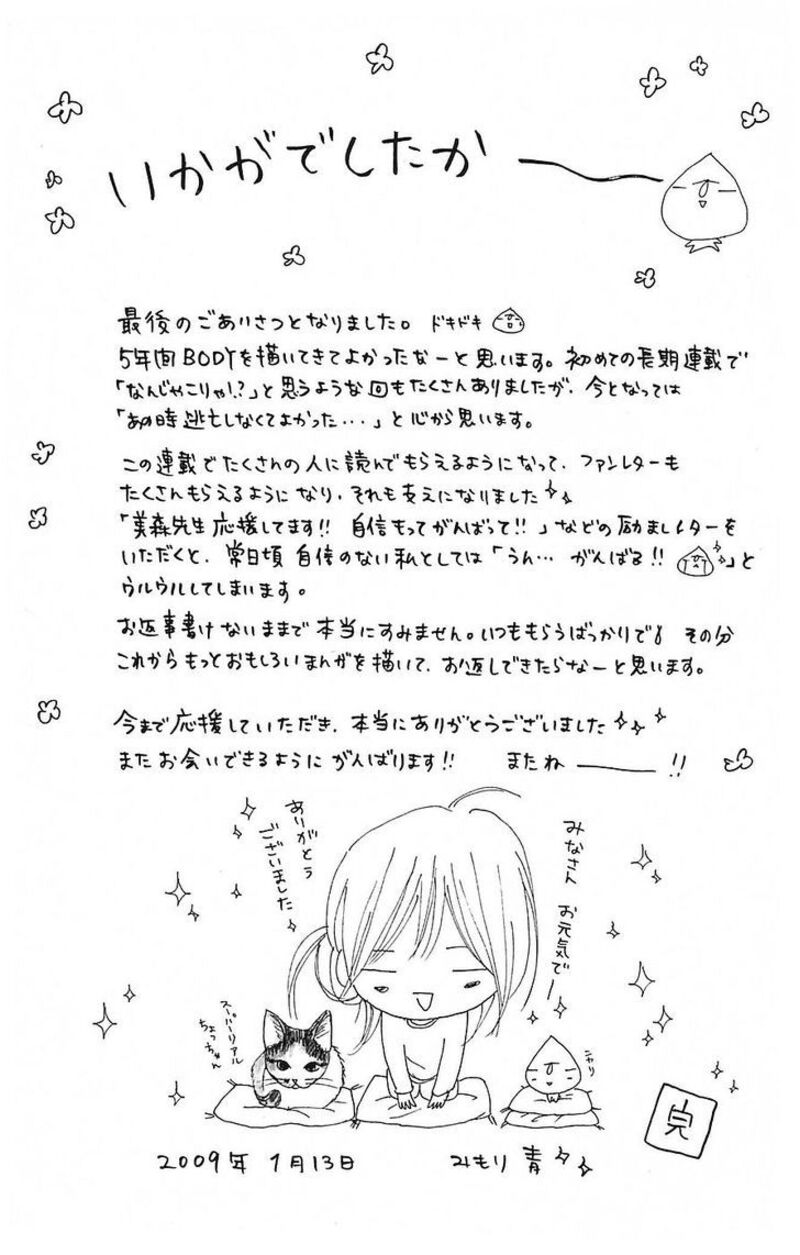 いかがでしたか――
最後のごあいさつとなりました。 ドキドキ
5年間BODYを描いてきてよかったなーと思います。初めての長期連載で
「なんじゃこりゃ!?」と思うような回もたくさんありましたが、今となっては
「あの時逃亡しなくてよかった・・・」と心から思います。
この連載でたくさんの人に読んでもらえるようになって、ファンレターも
たくさんもらえるようになり、それも支えになりました
「美森先生応援してます!! 自信もってがんばって!!」などの励ましレターを
いただくと、常日頃 自信のない私としては「うん… がんばる!! 」と
ウルウルしてしまいます。
お返事書けないままで本当にすみません。いつももらうばっかりで その分
これからもっとおもしろいまんがを描いて、お返しできたらなーと思います。
今まで応援していただき、本当にありがとうございました
またお会いできるようにがんばります!! またね――!!
みなさん お元気でー
ありがとう
ございました
スーパーリアル
ちょっちゃん
ニヤリ
完
2009年 1月13日 みもり青